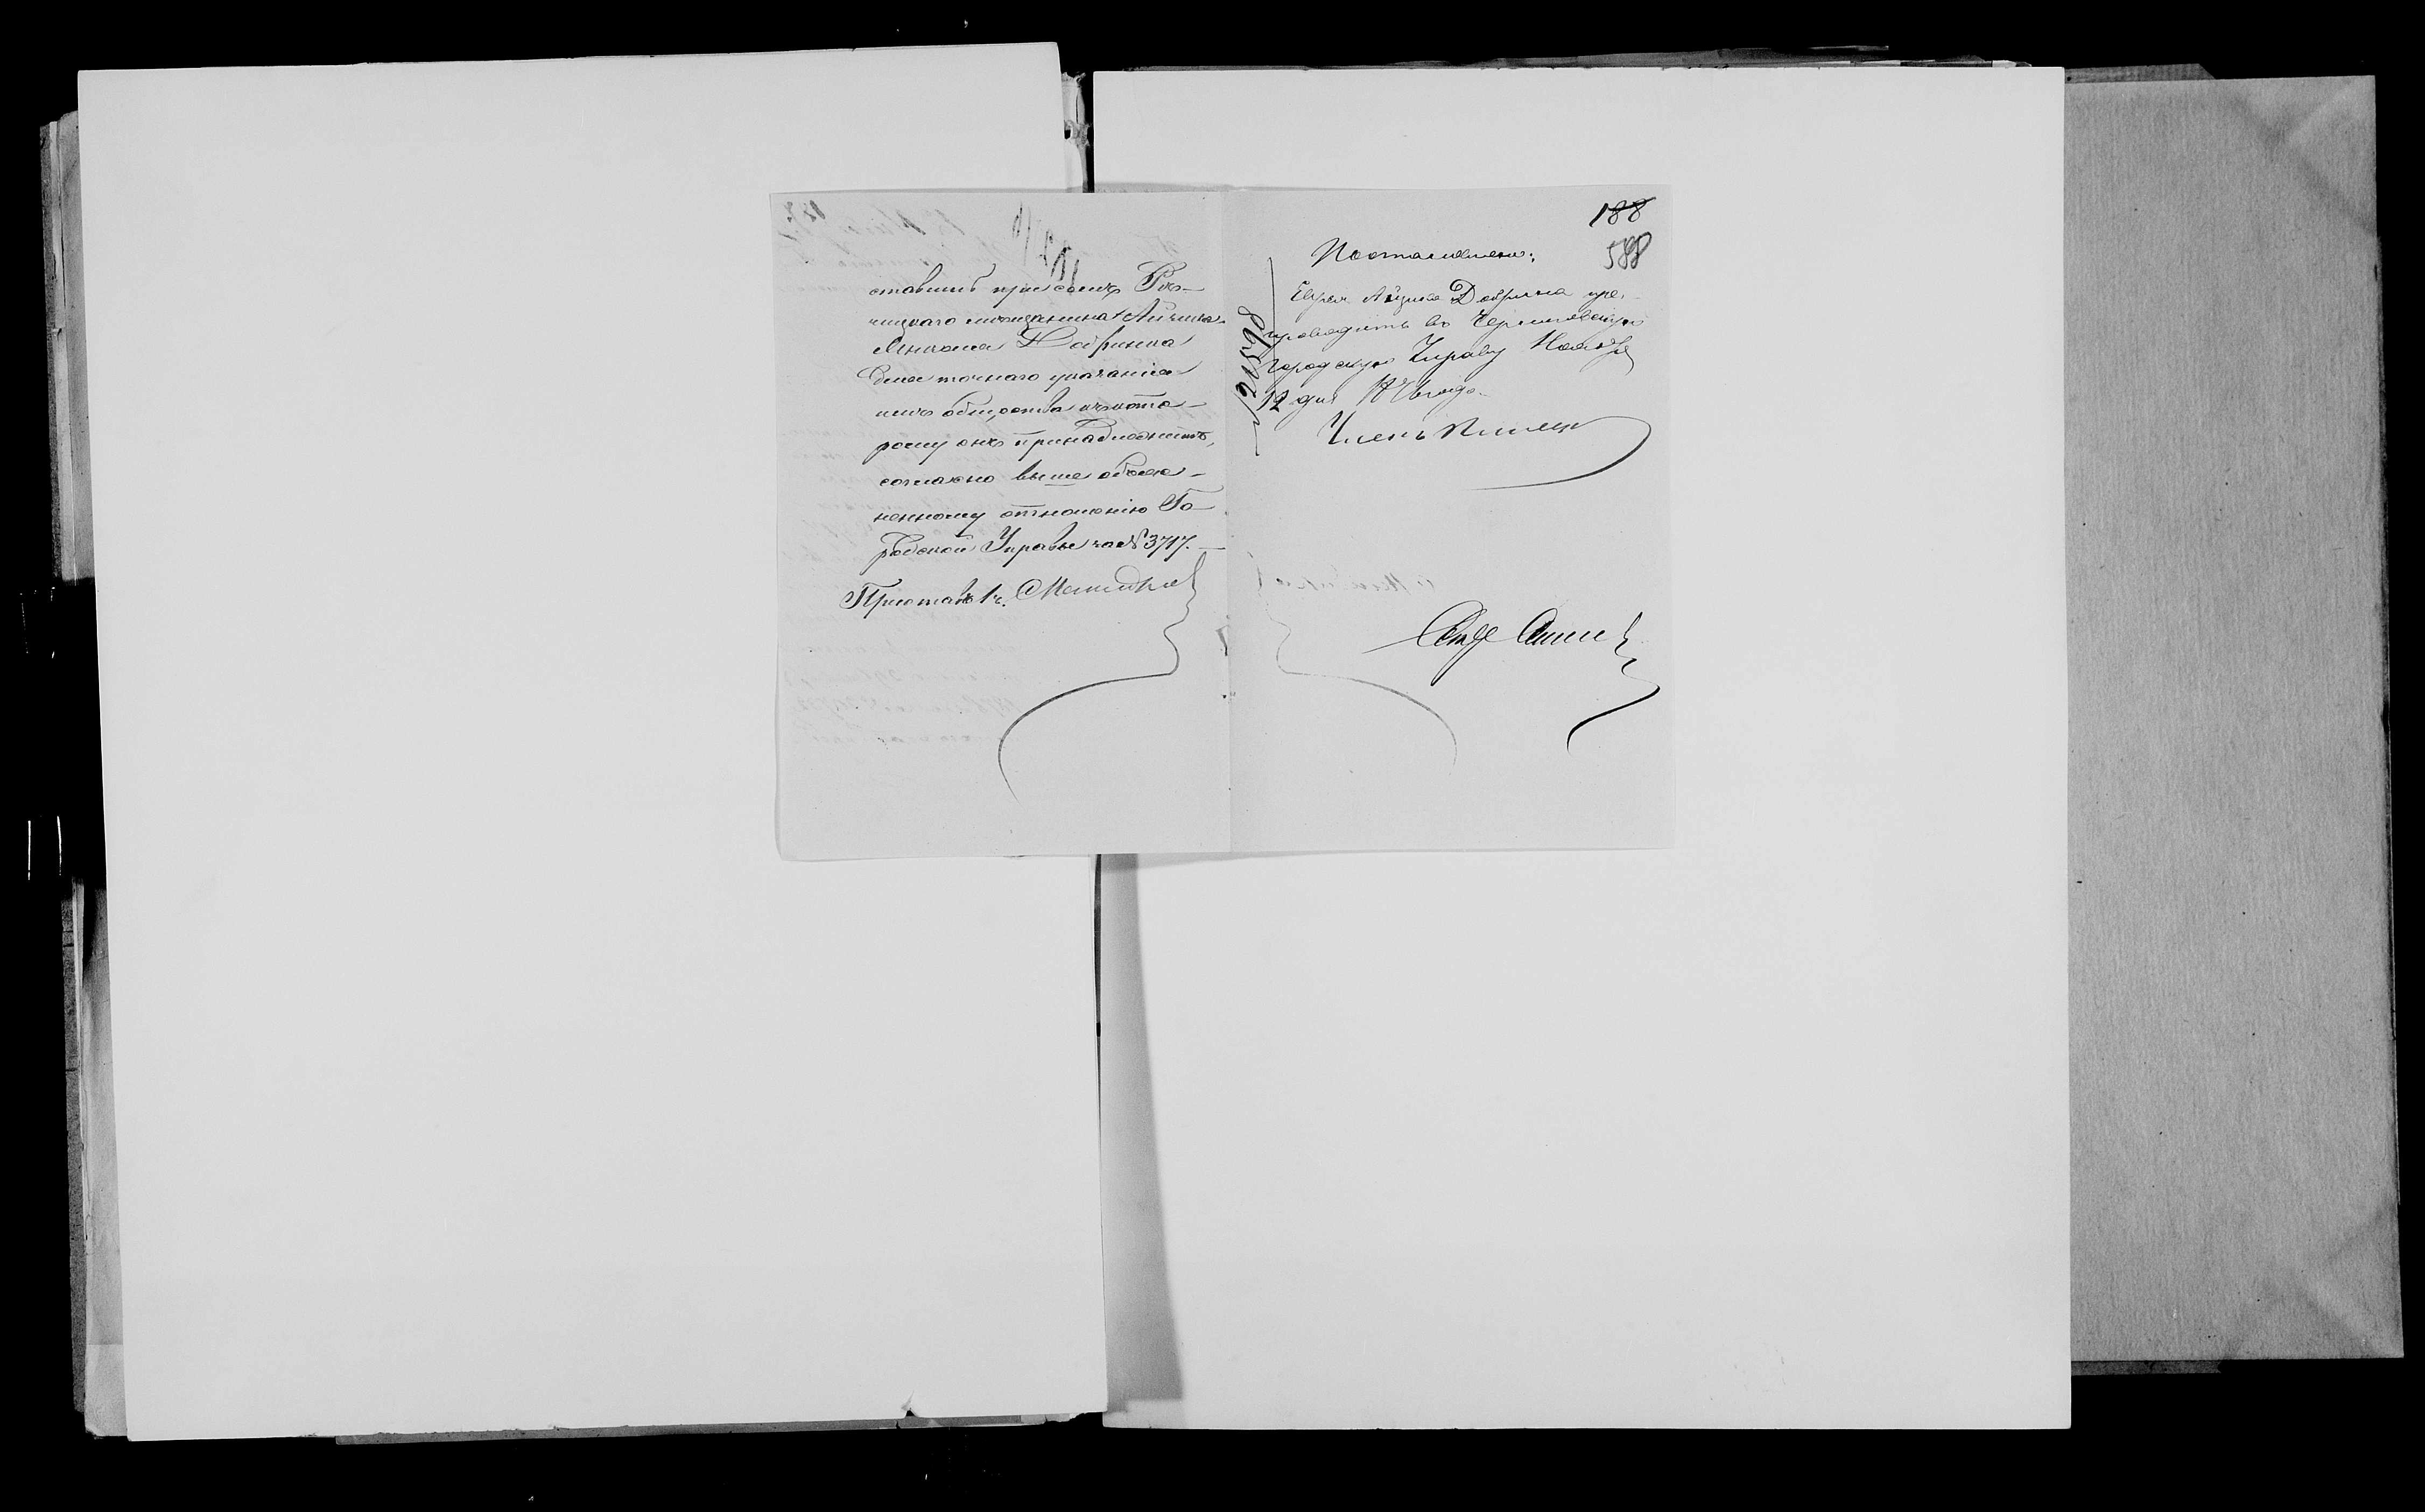 ставивъ при семъ Рѣ-
чицкаго мѣщанина Айзика
Добрина
для точнаго указанія
имъ общества къ кото-
рому онъ принадлежитъ,
согласно выше объяс-
ненному отношенію Го-
родской Управы за № 3717.
Приставъ 1 ч.
188
588
Постановлено:
Еврея Айзика Добрина пре-
проводить въ Черниговскую
Городскую Управу Ноября
12 дня года.
Членъ